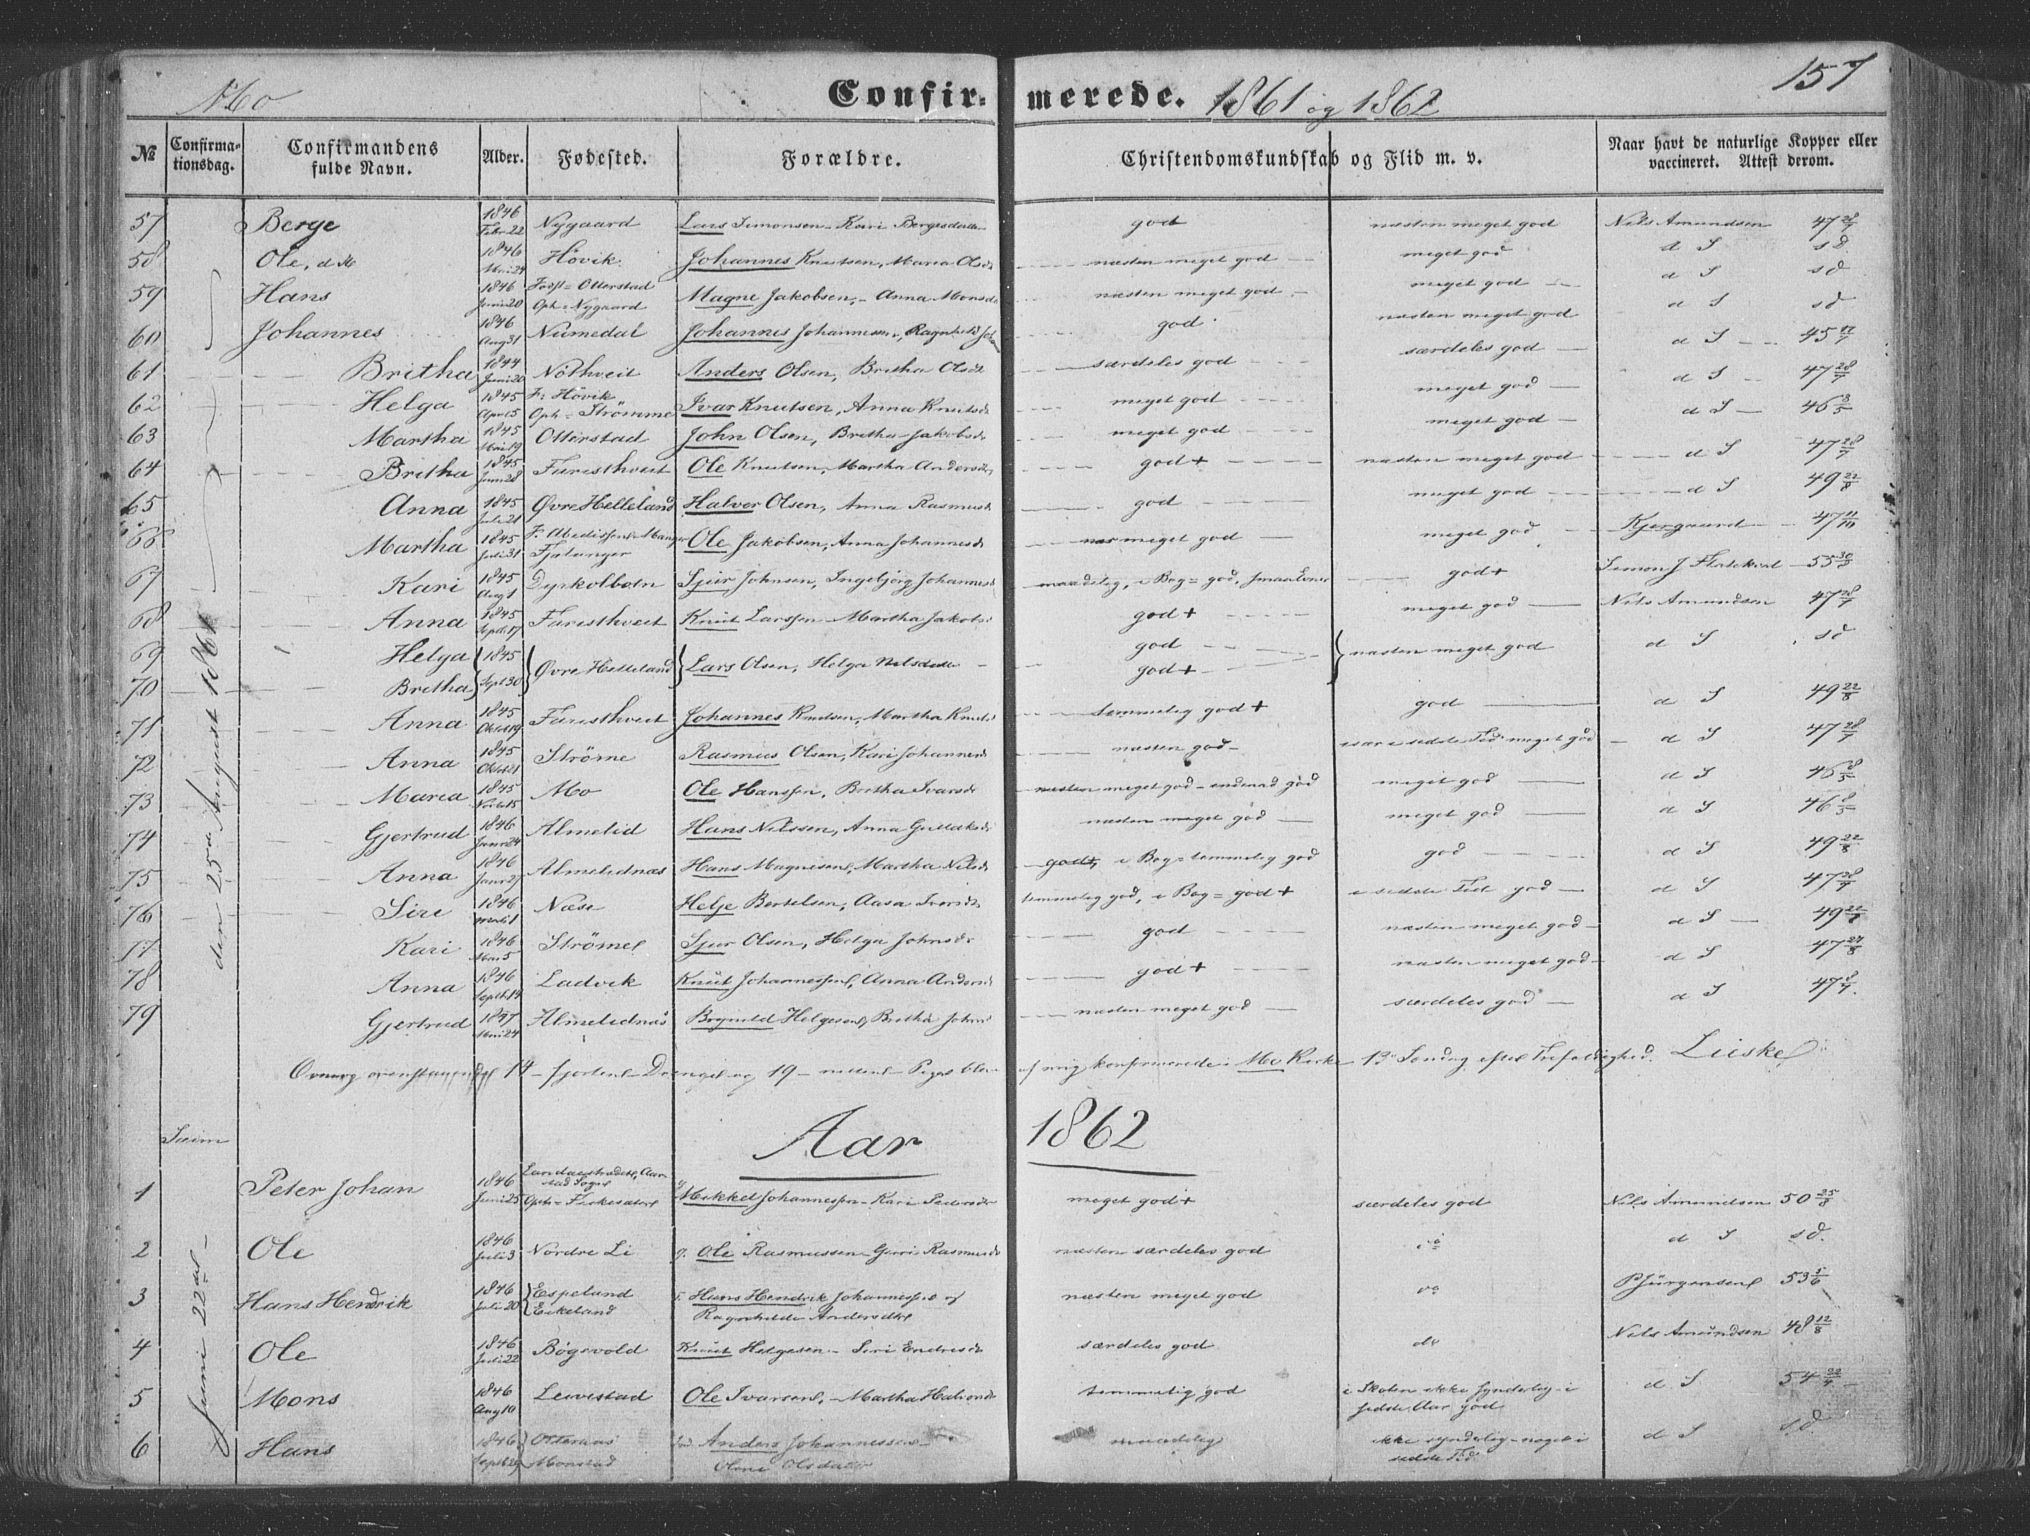 Mo Confirmerede. 1861 og 1862 157
№ Confirmationsdag. Confirmandens fulde Navn. Alder. Fødested. Forældre. Christendomskundskab og Flid m. v. Naar havt de naturlige Kopper eller vaccineret. Attest derom.
57 Berge 1846 Febr 22 Nygaard Lars Simonsen - Kari god næsten meget god Nils Amundsen 47 28/7
58 Ole, 1846 Mai 24 Hövik Johannes Knutsen, Maria Olsd næsten meget god meget god d S sd
59 Hans 1846 Juni 20 Otterstad Oph = Nygaard Magne Jakobsen, - Anna Monsd næsten meget god meget god d S sd
60 Johannes 1846 Aug 31 Numedal Johannes Johannessen, Ragnhild god næsten meget god d S sd
61 Britha 1844 Juni 20 Nöthveit Anders Olsen, Britha Olsd særdeles god særdeles god d S 45
62 Helga 1845 Apr 5 F: Hövik Oph = Strömme Ivar Knutsen, Anna Knutsd meget god meget god d S 47 28/7
63 Martha 1845 Mai 19 Otterstad John Olsen, Britha Jakobsd meget god meget god d S 46 8/5
64 Britha 1845 Juni 28 Faresthveit Ole Knutsen, Martha Andersd god + næsten meget god d S 47 28/7
65 Anna 1845 Juli 21 Øvre Helleland Halvor Olsen, Anna Rasmusd god meget god d S 49 22/8
66 Martha 1845 Juli 31 Fjelanger Ole Jakobsen, Anna Johannesd meget god meget god Kjergaard 47 11/10
67 Kari 1845 Aug 1 Dyrkolbotn Sjur Johnsen, Ingebjörg Johannesd maadelig, i Bog = god, god + Simon J 55
68 Anna 1845 Sept 17 Faresthveit Knut Larssen - Martha Jakobsd god + meget god Nils Amundsen 47 28/7
69 Helga 1845 Sept 30 Øvre Helleland Lars Olsen, Helga Nilsdatter god næsten meget god d S sd
70 Britha god +
71 Anna 1845 Faresthveit Johannes Knutsen, Martha Knutsd temmelig god + god d S 49 22/8
72 Anna 1845 Ströme Rasmus Olsen, Kari Johannesd næsten god i sidste Tid meget god d S 47 28/7
73 Maria 1845 Mo Ole Hanssen, Britha Ivarsd næsten meget god meget god d S 46 8/5
74 Gjertrud 1846 Janr 24 Almelid Hans Nilssen, Anna næsten meget god meget god d S 46 8/5
75 Anna 1846 Janr 27 Almelidnæs Hans Magnesen, Martha Nilsd god, i Bog = temmelig god god d S 49 22/8
76 Siri 1846 Næse Helje Bertelsen, Aasa Iversd temmelig god, i Bog = god + i sidste Tid god d S 47 28/7
77 Kari 1846 Mai 5 Strömel Sjur Olsen, Helga Johnsdr god næsten meget god d S 49
78 Anna 1846 Sept 14 Ladvik Knut Johannessen, Anna Andersd god + næsten meget god d S 47
79 Gjertrud 1847 Mai 24 Almelidnäs Helgesen, Britha Johnsd næsten meget god særdeles god d S 47
den 25de August 1861
14 - fjorten - Drenge og 19 - nitten - Piger blev af mig konfirmerede i Mo Kirke 13de Söndag efter Trefoldighed. Lieske
Aar 1862
Sæim
Juni 22de
1 Peter Johan 1846 Juni 25 Mikkel Johannessen - Kari Pedersdr meget god + særdeles god Nils Amundsen 50 25/8
2 Ole 1846 Juli 3 Nordre Li g. Ole Rasmussen - Rasmusd næsten særdeles god do d S sd.
3 Hans Hendrik 1846 Juli 20 Espeland Eikeland Hans Hendrik Johannessen og Ragnhilde Andersdtr næsten meget god do P Jürgensen 53 5/6
4 Ole 1846 Juli 22 Bögevold Knut Helgesen - Siri Endresd særdeles god do Nils Amundsen 48 12/8
5 Mons 1846 Aug 10 Leirestad Ole Ivarsen, - Martha temmelig god i Skolen ikke synderlig - i sidste Aar god d S 54
6 Hans 1846 Otteraas Monstad Anders Johannessen - Olsdatter maadelig ikke synderlig - noget i sidste Tid d S sd